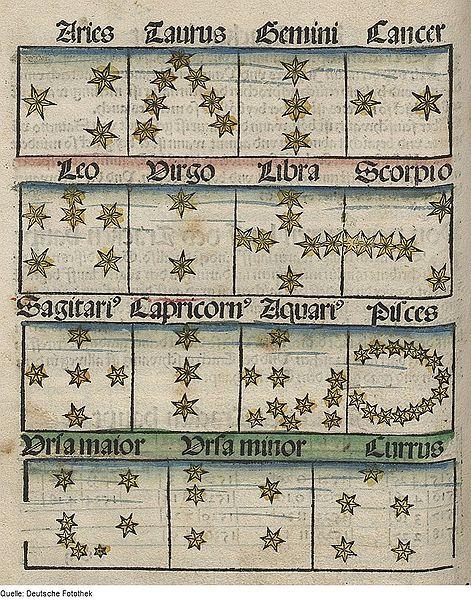 Aries Taurus Gemini Cancer
Leo Virgo Libra Scorpio
Sagitari⁹ Capricorn⁹ Aquari⁹ Pisces
Ursa maior Ursa minor Currus
Quelle: Deutsche Fotothek